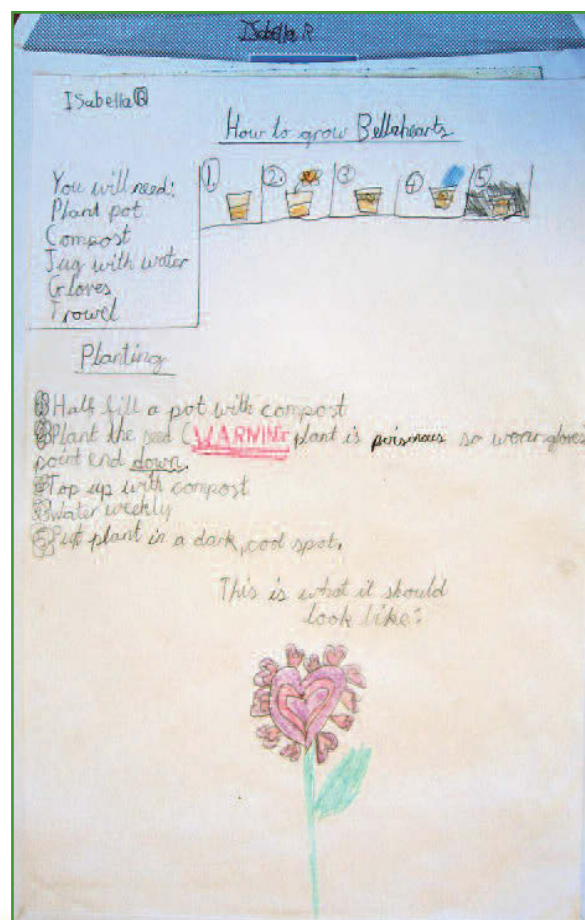 Isabella R
Isabella R
How to grow Bellahearts
You will need:
Plant pot
Compost
Jug with water
Gloves
Trowel
1. 2. 3 4 5
Planting
1 Half fill a pot with compost
2 Plant the seed (WARNING plant is poisonous so wear gloves
point end down.
3 Top up with compost
4 Water weekly
5 Put plant in a dark, cool spot.
This is what it should
look like: